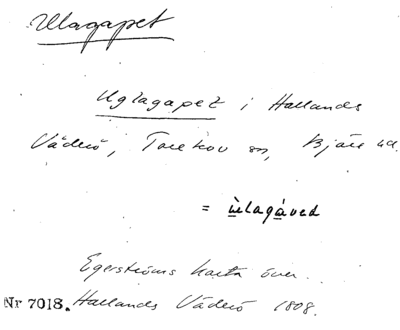 Ulagapet
Uglagapet i Hallands
Väderö, Torekov sn, Bjäre hd.
= ùlagáved
Egerströms karta över
Nr 7018. Hallands Väderö 1808.